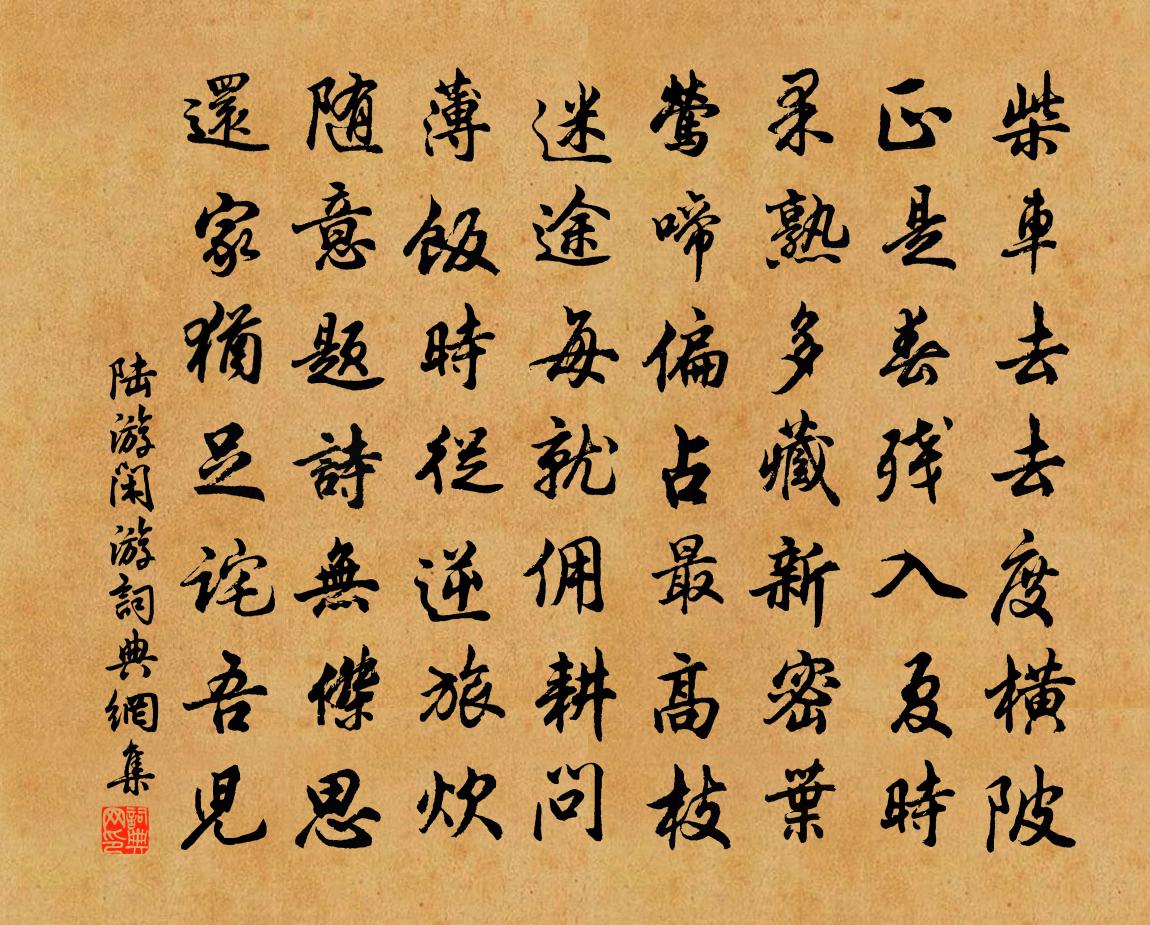 柴車去去度橫陂
正是春残入夏時
果熟多藏新密葉
鶯啼偏占最高枝
迷途每就佣耕問
薄飯時從逆旅炊
随意題詩無傑思
還家猶足詫吾児
陆游闲游詞典網集
詞典网印